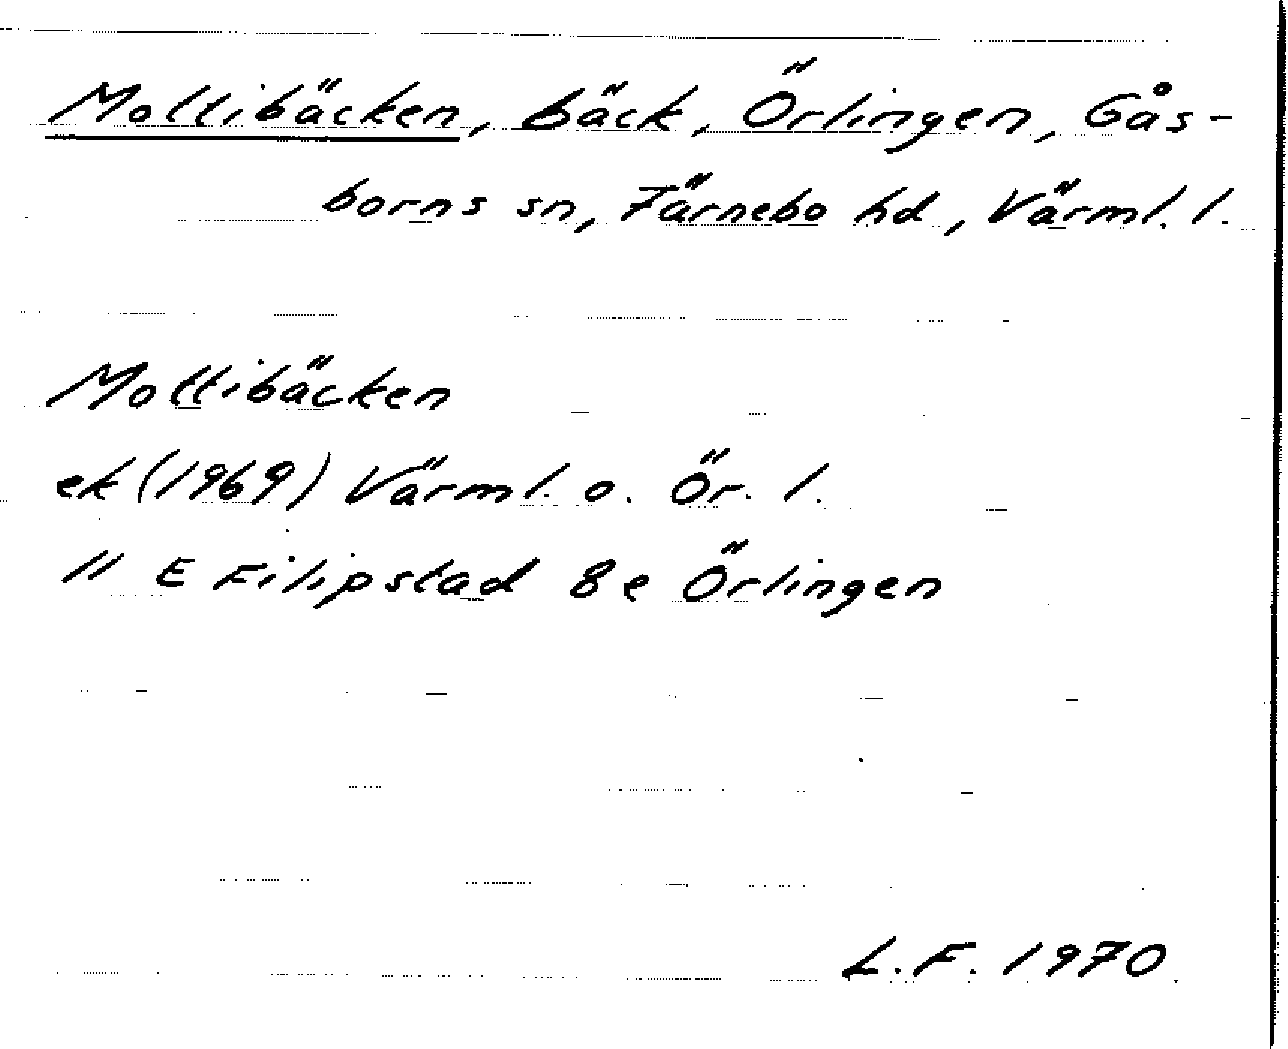 Mollibäcken, bäck, Örlingen, Gås-
borns sn, Färnebo hd, Värml. l.
Mollibäcken
ek (1969) Värml. o. Ör. l.
11 E Filipstad 8 e Örlingen
L.F. 1970